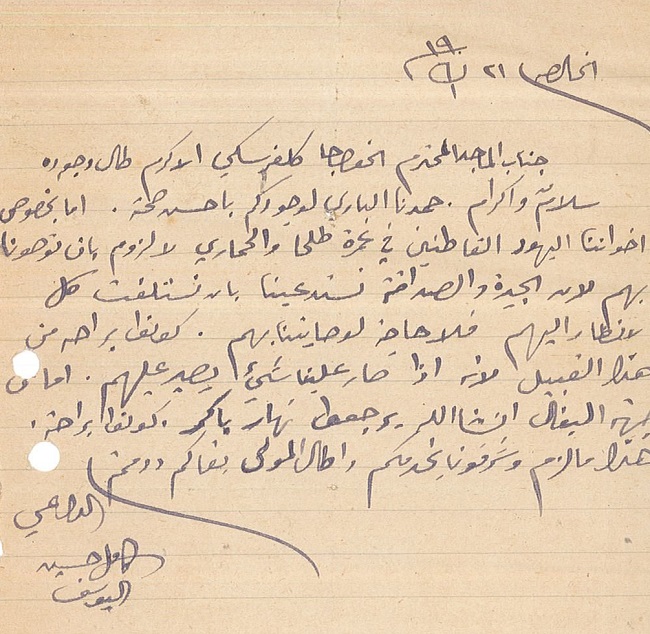 الخالصه ٢١ ك١ ١٩
جناب الماجد المحترم الخواجا كلفرسكي الاكرم طال وجوده
سلام واكرام . حمدنا الباري لوجودكم باحسن صحة . اما بخصوص
اخواننا اليهود القاطنين في طلحا والحماري لا لزوم بان توصونا
بهم لان الجيرة والصداقة تستدعينا بان نستلفت كل
لانظار اليهم فلا حاجة لوصايتنا بهم . كونوا براحه من
هذا القبيل لانه اذا صار علينا شيء يصير عليهم . اما من
جهة البغال انشاالله يرجعوا نهار باكر . كونوا براحة .
هذا ما لزم وشرفونا بخدمكم واطال المولى بقاكم ودمتم
الداعي
كامل حسين
اليوسف